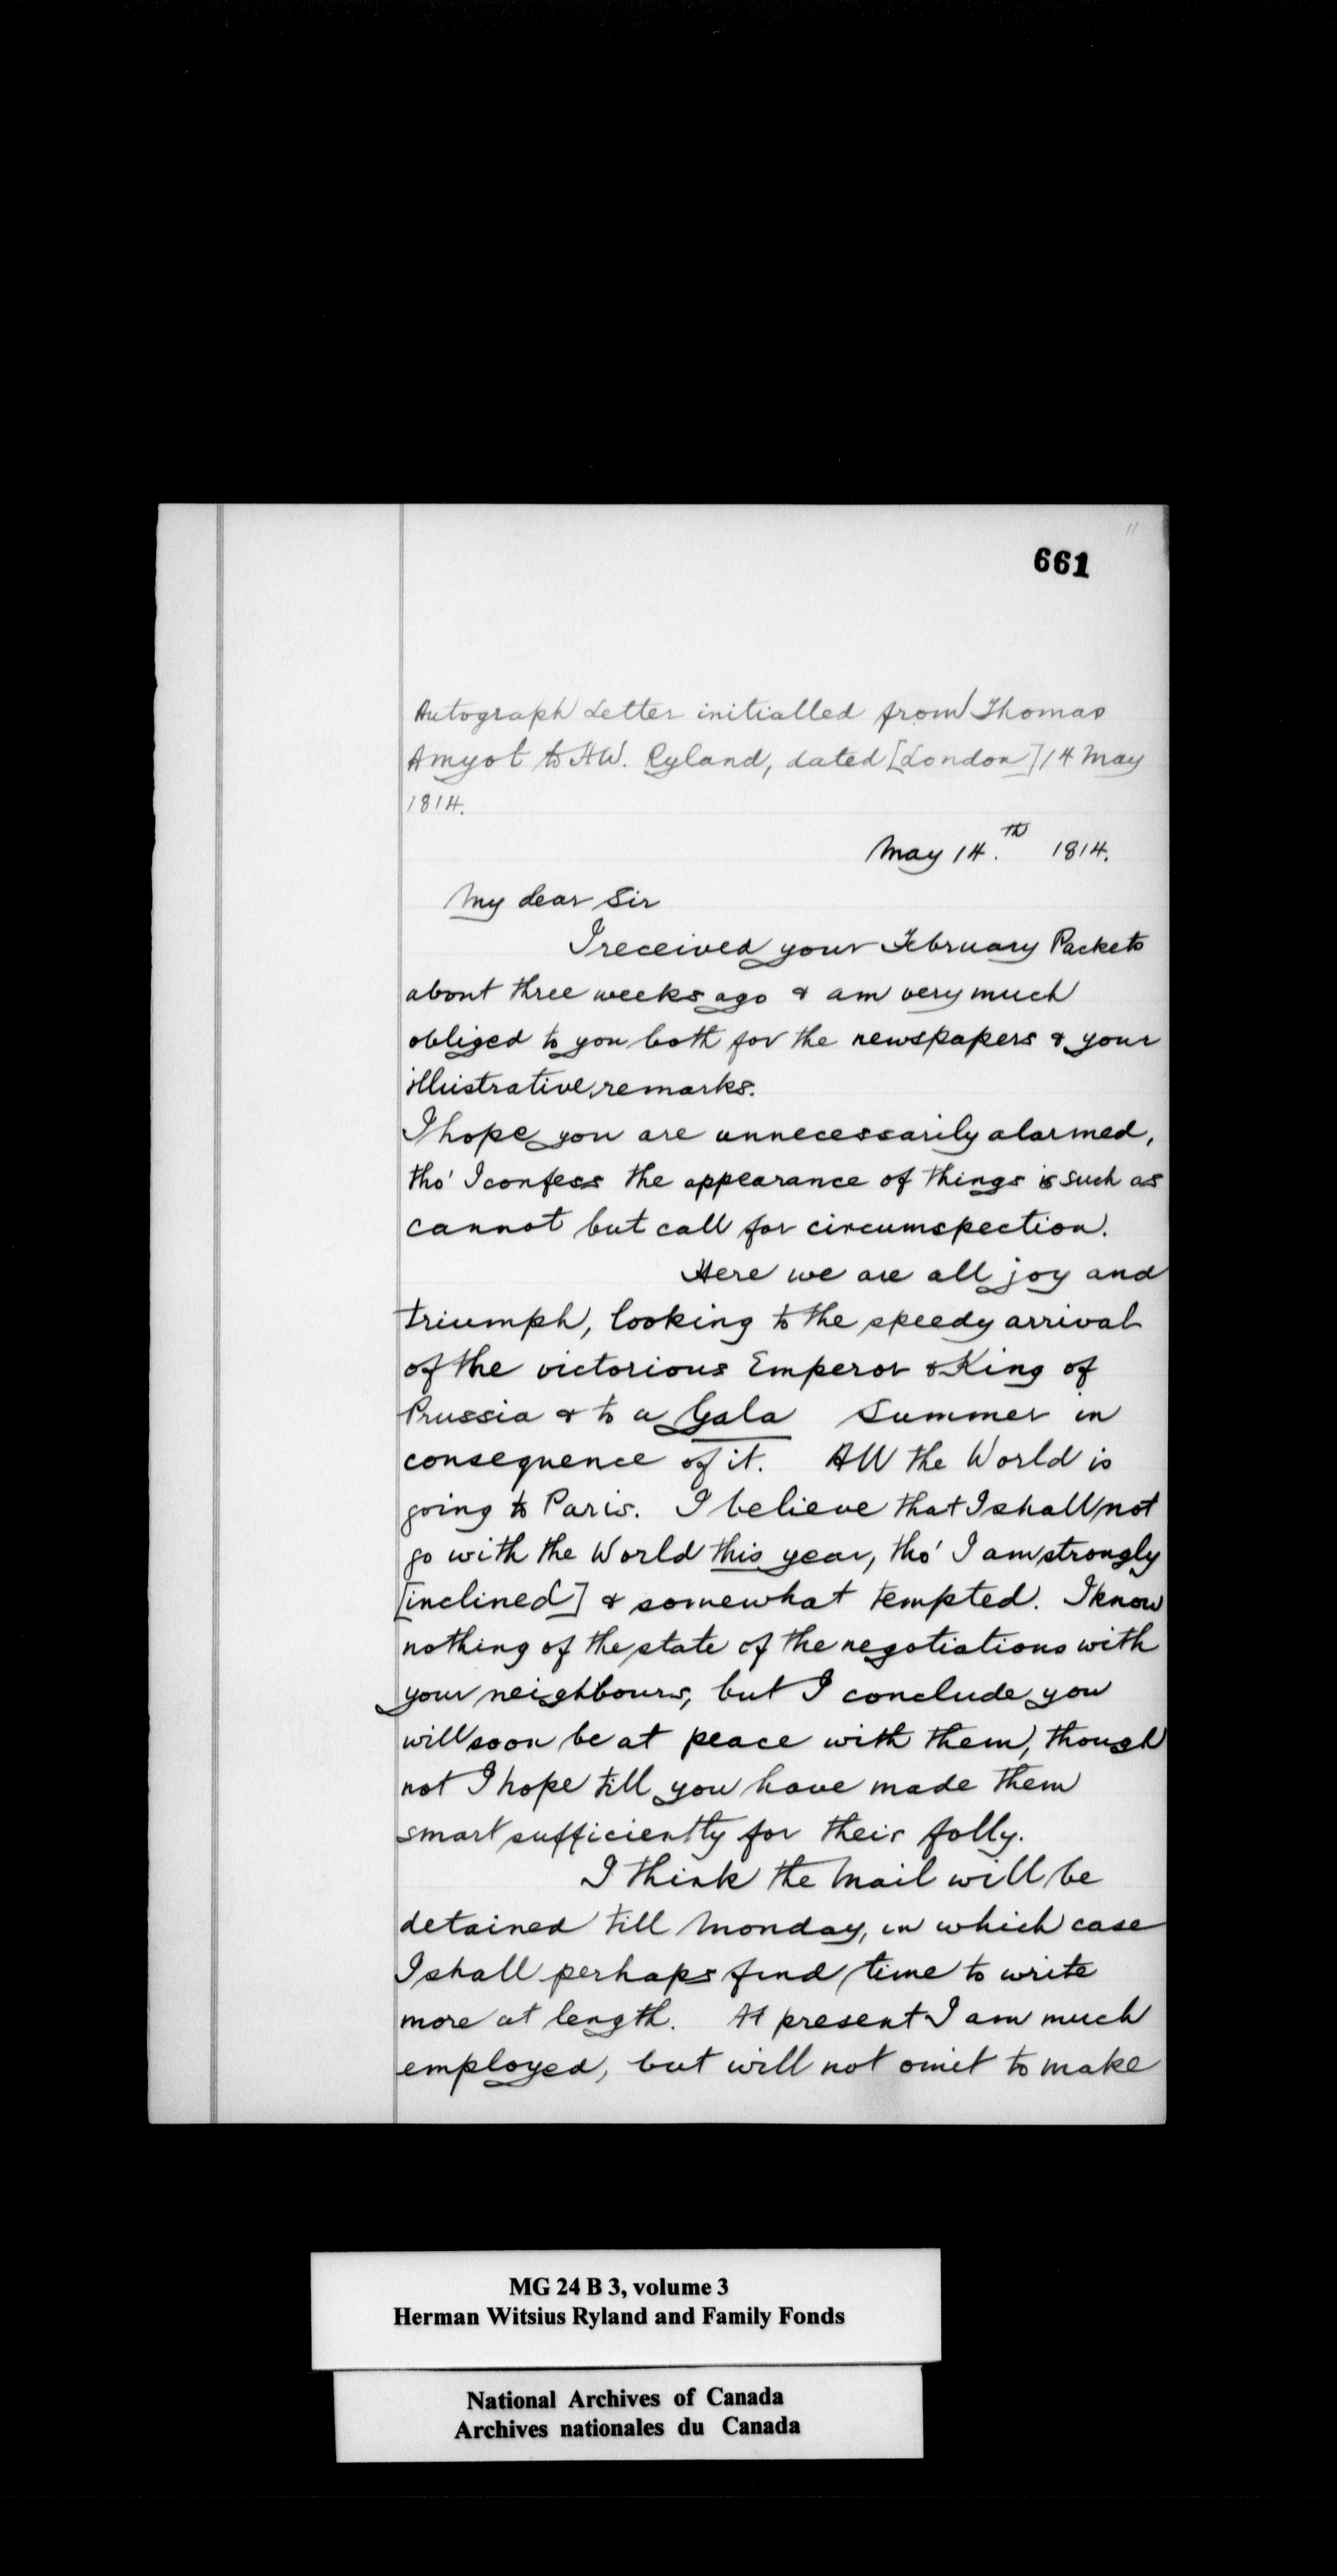 661
Autograph Letter initialled from Thomas
Amyot to HW. Ryland, dated [London] 14 May
1814.
May 14.th 1814.
My dear Sir
I received your February Packets
about three weeks ago & am very much
obliged to you both for the newspapers & your
illustrative remarks.
I hope you are unnecessarily alarmed,
tho' I confess the appearance of things is such as
cannot but call for circumspection.
Here we are all joy and
triumph, looking to the speedy arrival
of the victorious Emperor & King of
Prussia & to a Gala Summer in
consequence of it. All the World is
going to Paris. I believe that I shall not
go with the World this year, tho' I am strongly
[inclined] & somewhat tempted. I know
nothing of the state of the negotiations with
your neighbours, but I conclude you
will soon be at peace with them, though
not I hope till you have made them
smart sufficiently for their folly.
I think the Mail will be
detained till Monday, in which case
I shall perhaps find time to write
more at length. At present I am much
employed, but will not omit to make
MG 24 B 3, volume 3
Herman Witsius Ryland and Family Fonds
National Archives of Canada
Archives nationales du Canada